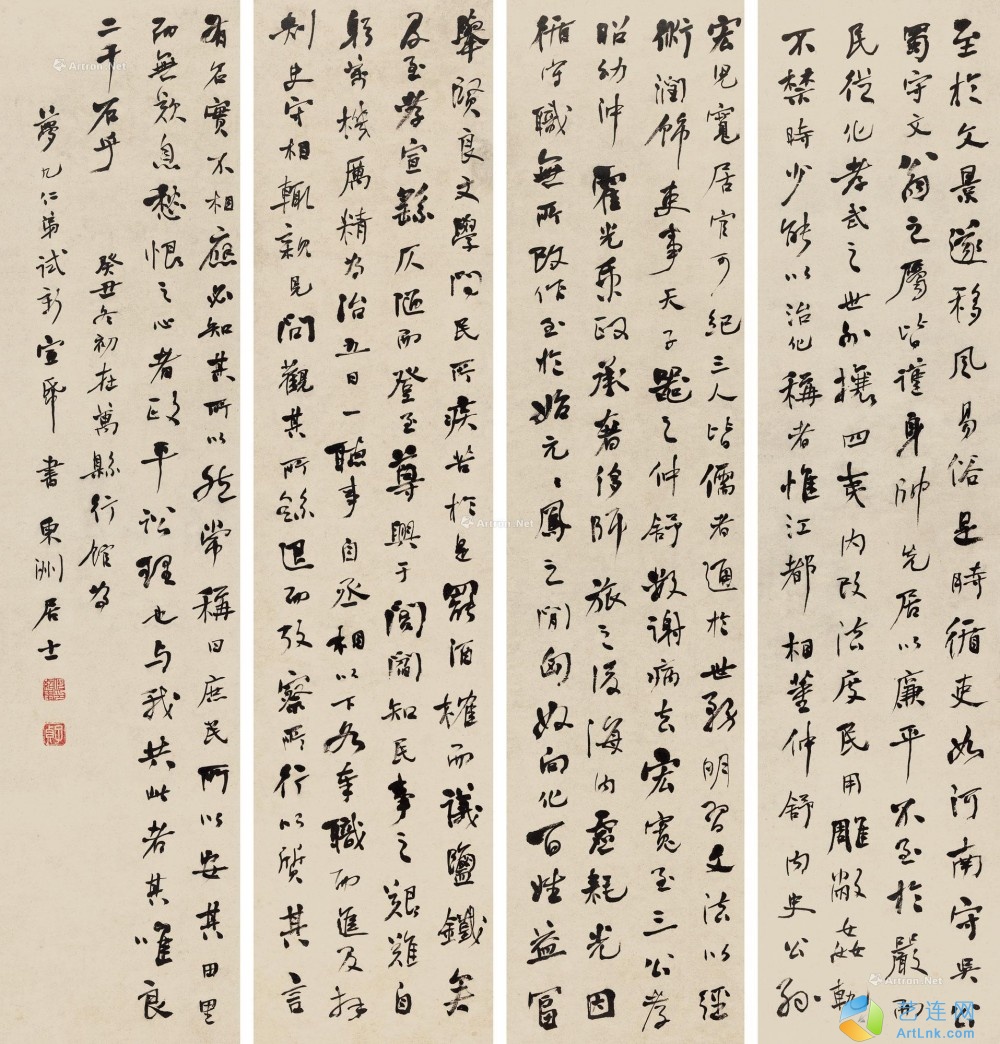 至於文景遂移風易俗是時循吏如河南守吳公
蜀守文翁之屬皆謹身帥先居以廉平不至於嚴而
民從化孝武之世外攘四夷內改法度民用雕敝姦軌
不禁時少能以治化稱者惟江都相董仲舒內史公孫
宏兒寬居官可紀三人皆儒者通於世務明習文法以經
術潤飾吏事天子器之仲舒數謝病去宏寬至三公孝
昭幼沖霍光秉政承奢侈師旅之後海內虛耗光因
循守職無所改作至於始元〻鳳之間匈奴向化百姓益富
舉賢良文學問民所疾苦於是罷酒榷而議鹽鐵矣
及至孝宣繇仄陋而登至尊興于閭閻知民事之艱難自
躬萬機厲精為治五日一聽事自丞相以下各奉職而進及拜
刺史守相輒親見問觀其所繇退而考察所行以質其言
有名實不相應必知其所以然常稱曰庶民所以安其田里
而無歎息愁恨之心者政平訟理也与我共此者其唯良
二千石乎 癸丑冬初在萬縣行館為
夢九仁弟試新宣帋 書 東洲居士
子貞
Artron.Net
Artron.Net
Artron.Net
艺连网
ArtLnk.com